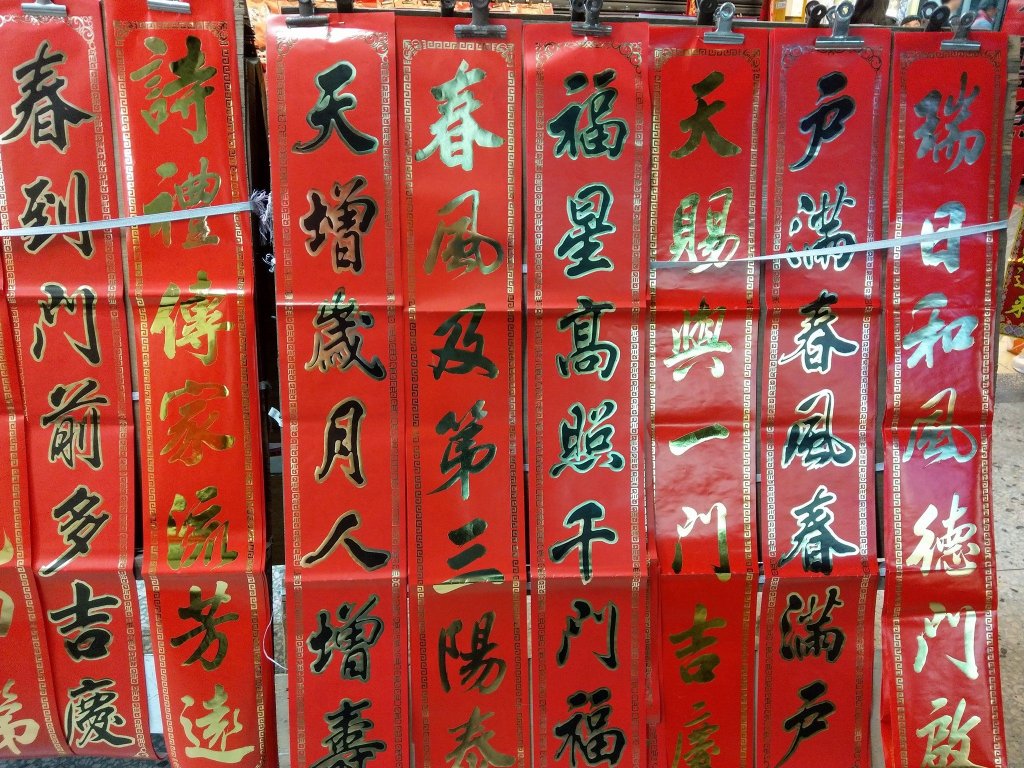 瑞日和風德門啟
戶滿春風春滿戶
天賜與一門吉慶
福星高照千門福
春風及第三陽泰
天增歲月人增壽
詩禮傳家流芳遠
春到門前多吉慶
第